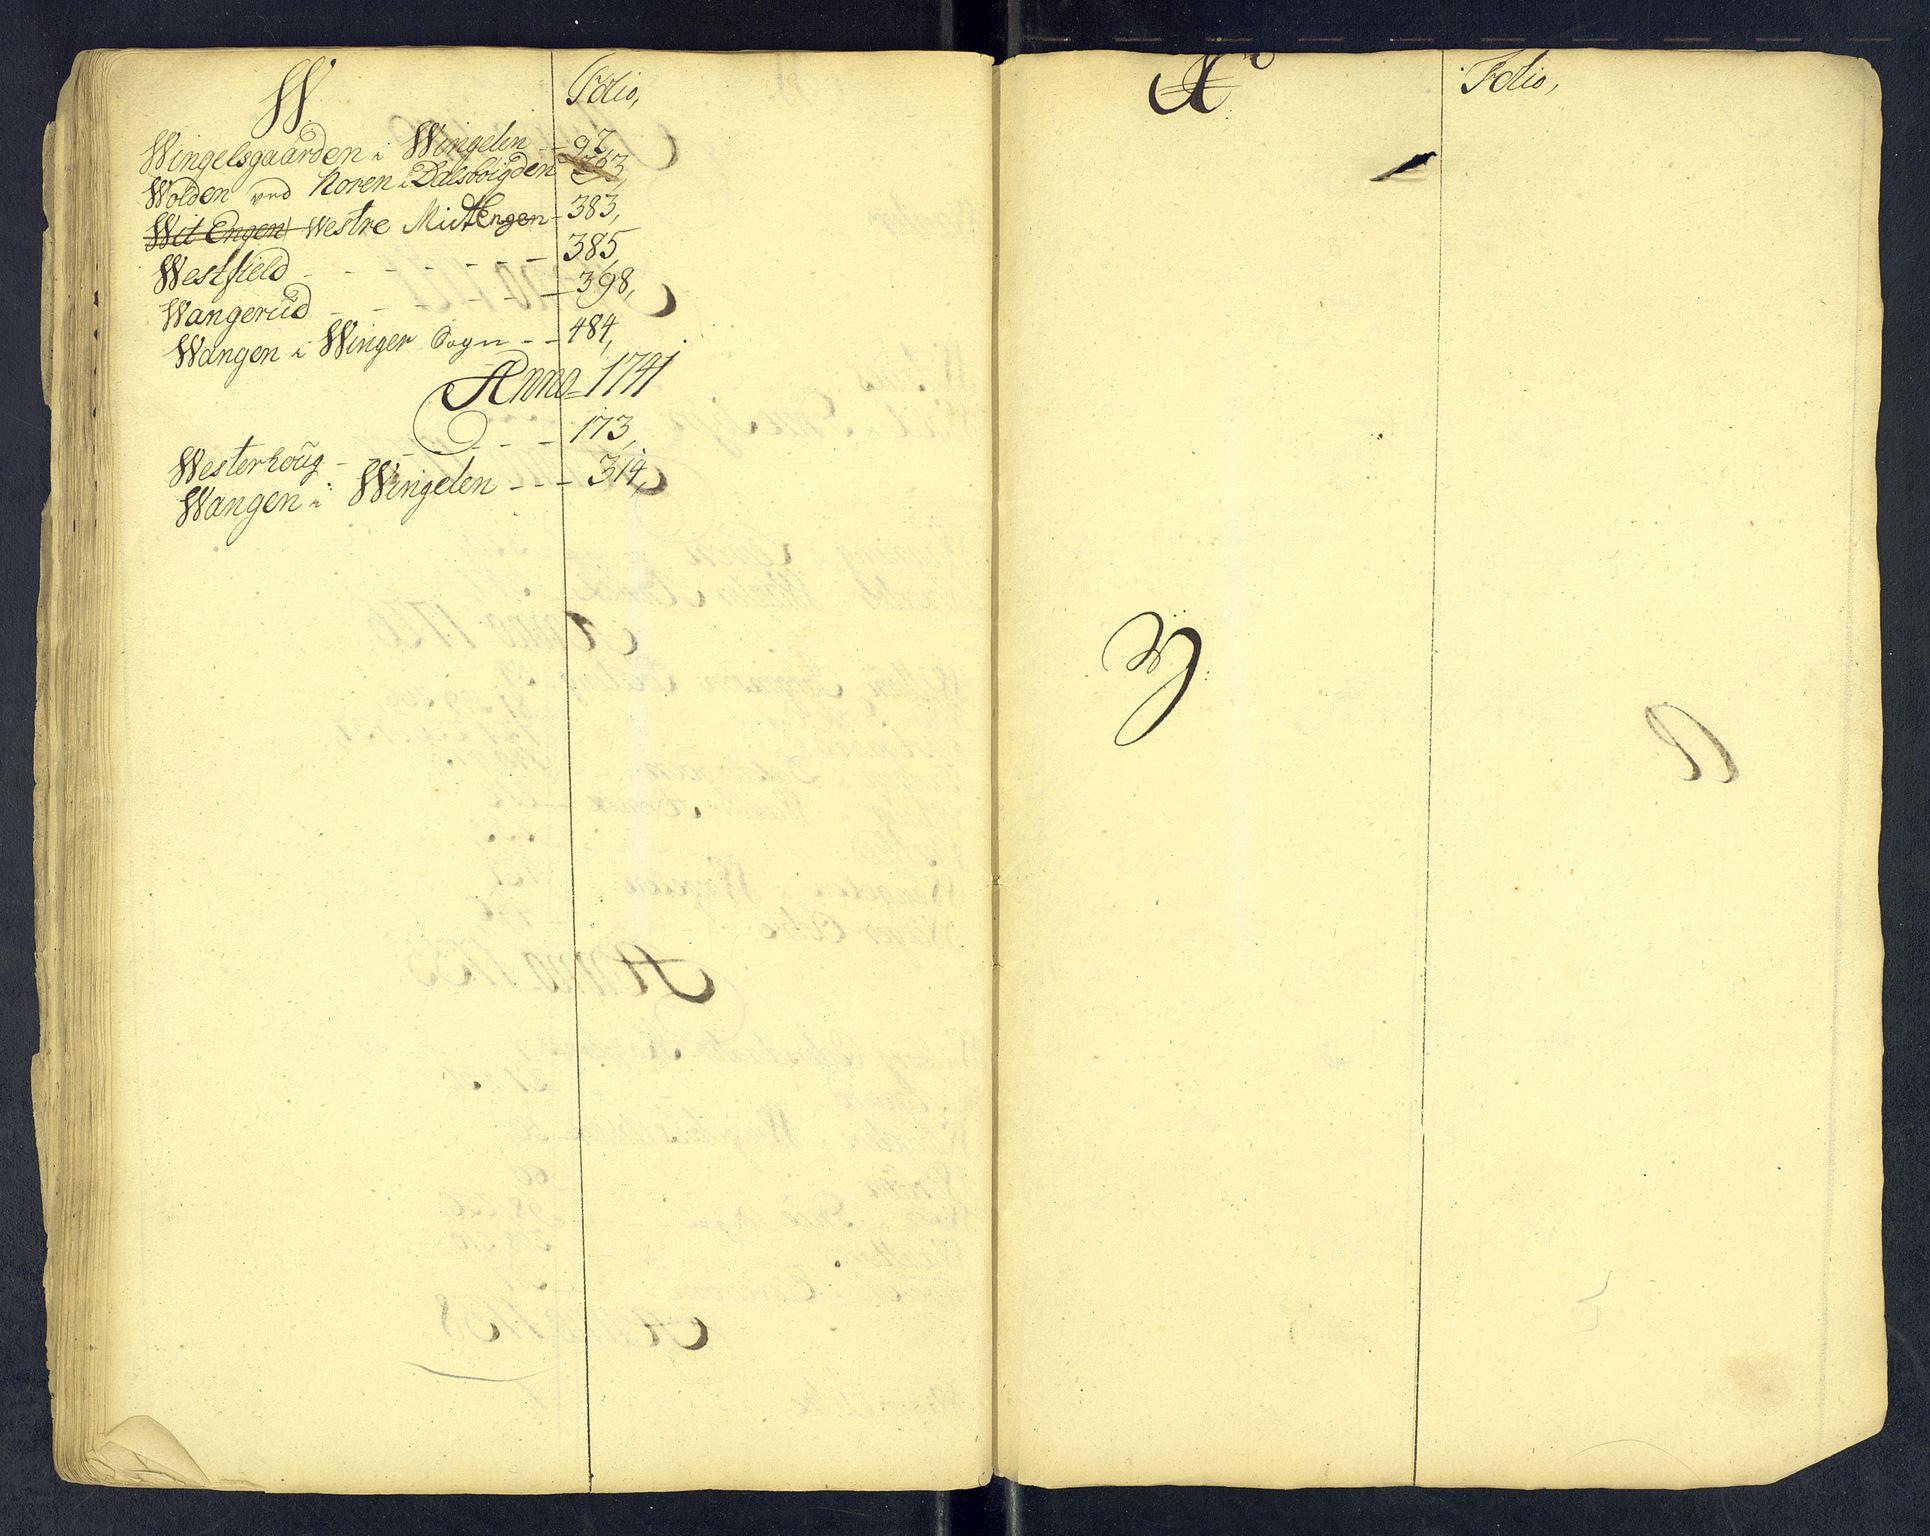 W. Folio,
Wingelsgaarden i Wingelen - - 97,
Wolden ved Noren i Dalsboigden 363,
Wit Engen Westre Mictengen - 383,
Westfield - - - - - - - 385,
Wangerud - - - - - - 398,
Wangen i Winger Sogn - - 484,
Anno 1741
Westerhoug - - - - - 173,
Wangen i Wingelen - - - 314,
X Folio,
Y